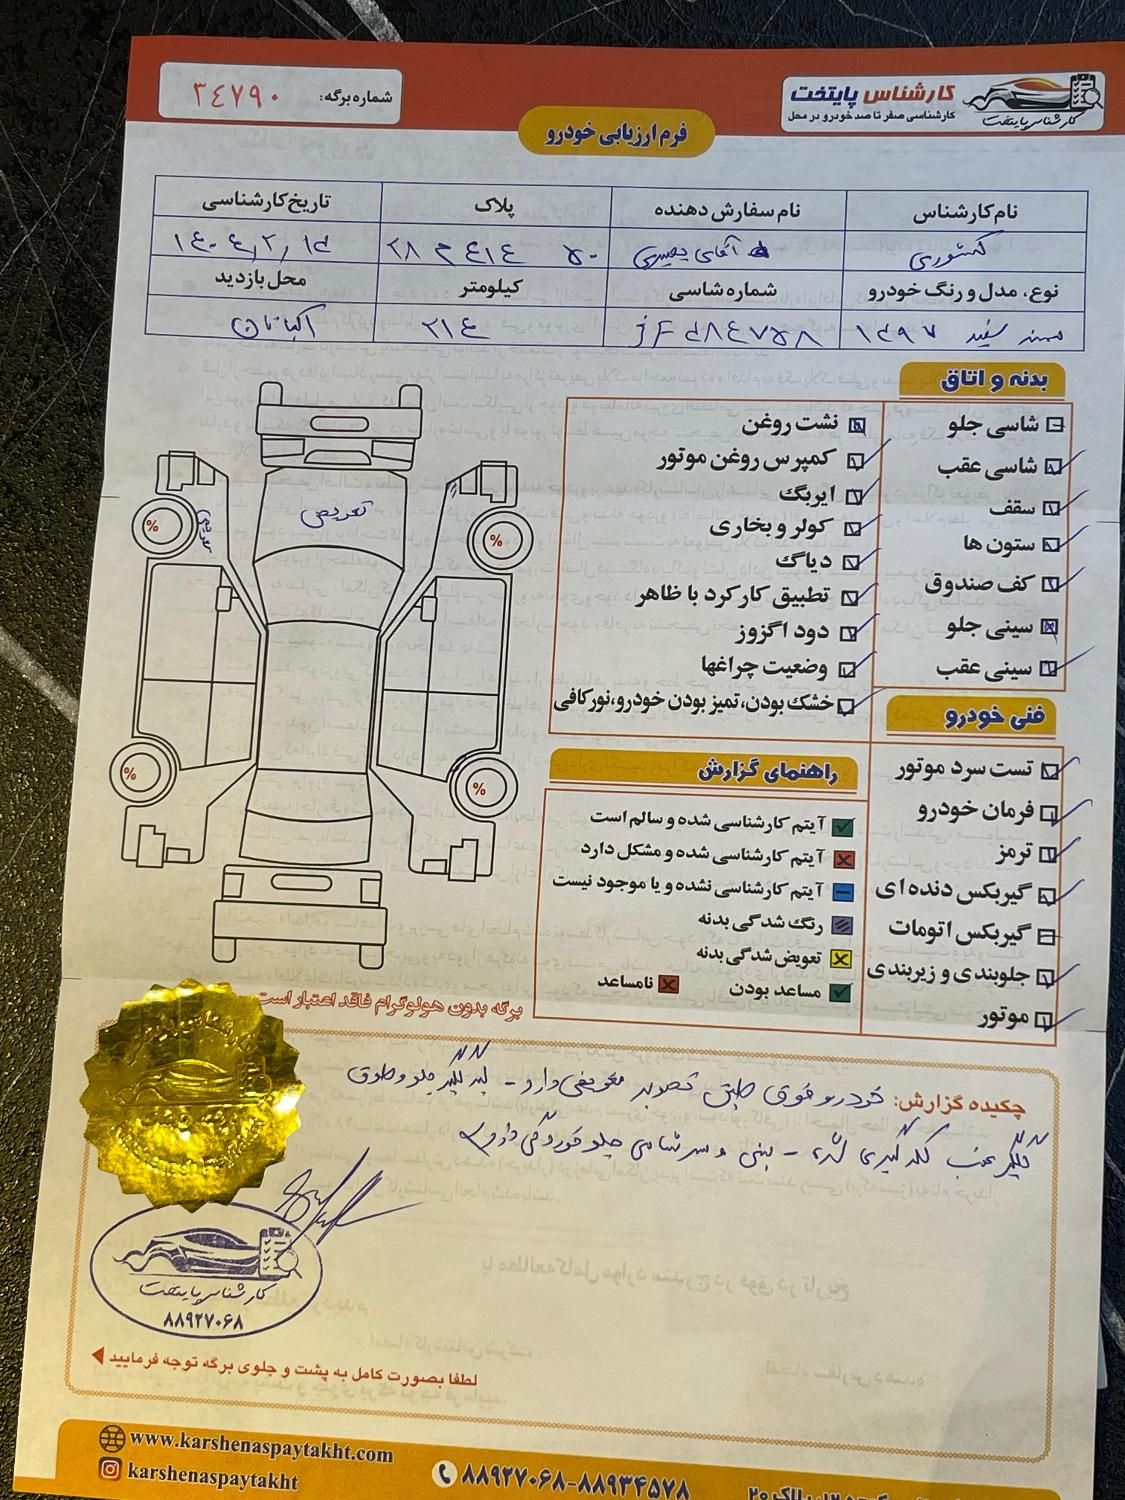 کارشناس پایتخت
کارشناسی صفر تا صد خودرو در محل
کارشناس پایتخت
شماره برگه: ٣٤٧٩٠
فرم ارزیابی خودرو
نام کارشناس
نام سفارش دهنده
پلاک
تاریخ کارشناسی
کشوری
آقای بصیری
نوع، مدل و رنگ خودرو
شماره شاسی
کیلومتر
محل بازدید
سمند سفید ١٣٩٧
٢١٤
اکباتان
بدنه و اتاق
شاسی جلو
شاسی عقب
سقف
ستون ها
کف صندوق
سینی جلو
سینی عقب
نشت روغن
کمپرس روغن موتور
ایربگ
کولر و بخاری
دیاگ
تطبیق کارکرد با ظاهر
دود اگزوز
وضعیت چراغها
خشک بودن، تمیز بودن خودرو، نورکافی
فنی خودرو
تست سرد موتور
فرمان خودرو
ترمز
گیربکس دنده ای
گیربکس اتومات
جلوبندی و زیربندی
موتور
راهنمای گزارش
آیتم کارشناسی شده و سالم است
آیتم کارشناسی شده و مشکل دارد
آیتم کارشناسی نشده و یا موجود نیست
رنگ شدگی بدنه
تعویض شدگی بدنه
مساعد بودن
نامساعد
تعویض
تعویض
%
%
%
%
برگه بدون هولوگرام فاقد اعتبار است
چکیده گزارش: خودرو فوق طبق تصویر تعویضی دارد - لبه گلگیر جلو و
گلگیر عقب لکه گیری شده - سینی و سر شاسی جلو خوردگی دارد
کارشناس پایتخت
۸۸۹۲۷۰۶۸
لطفا بصورت کامل به پشت و جلوی برگه توجه فرمایید
www.karshenaspaytakht.com
karshenaspaytakht
۸۸۹۲۷۰۶۸-۸۸۹۳۴۵۷۸
پلاک ۲۰